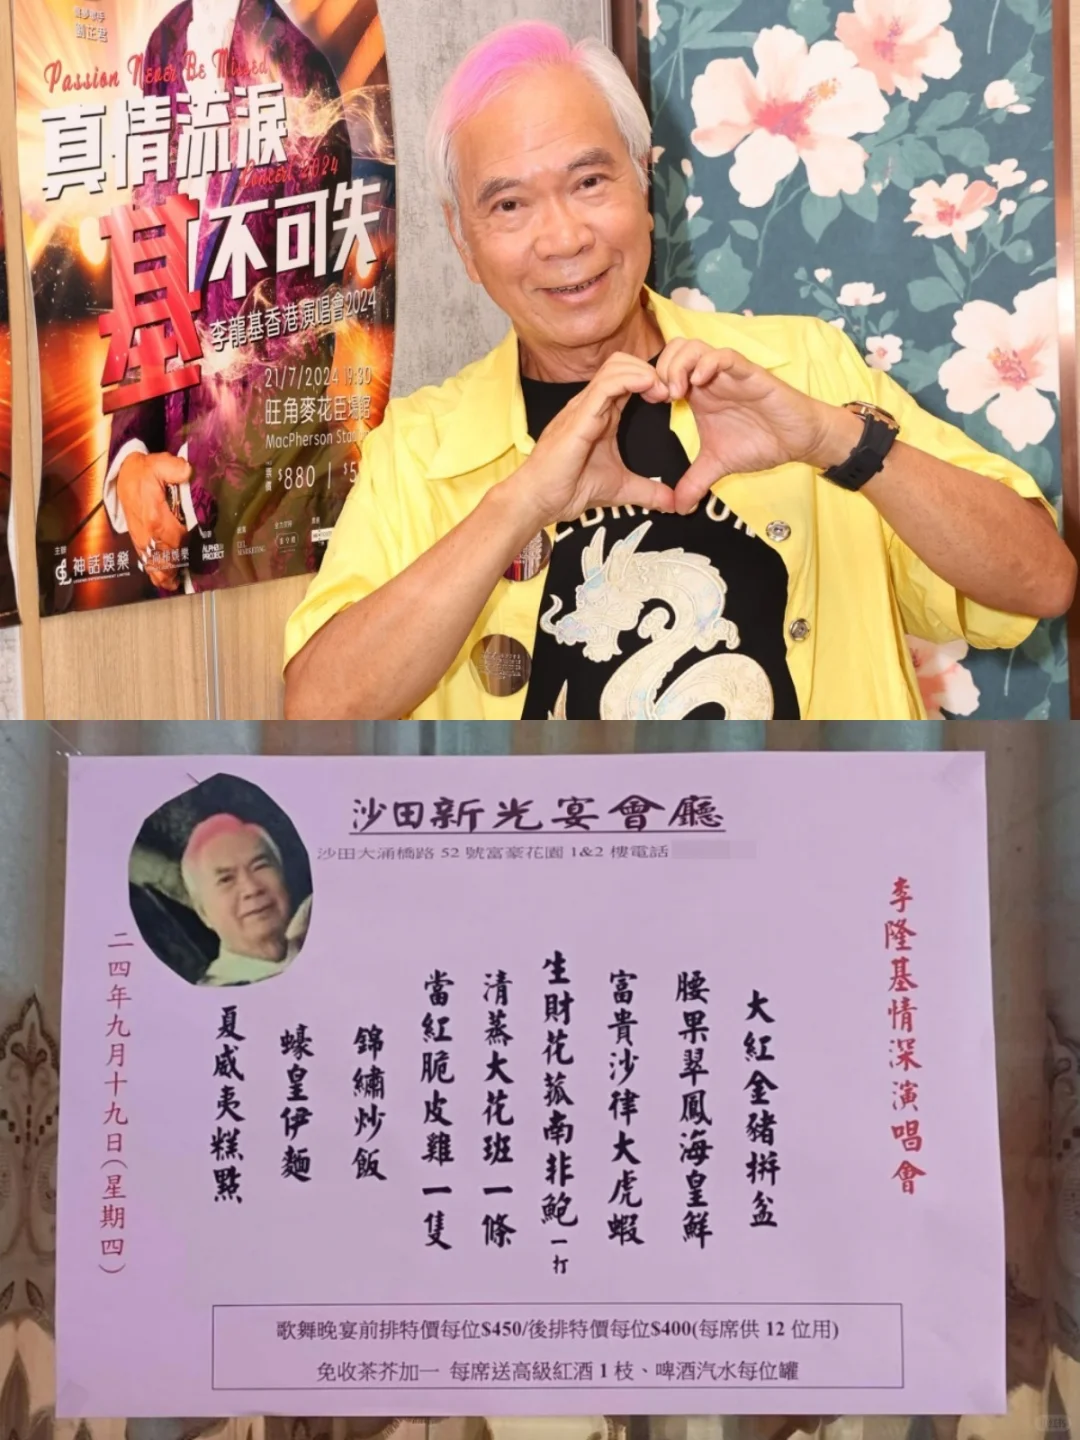 Passion Never Be Missed
真情流淚
Concert 2024
基不可失
李龍基香港演唱會2024
21/7/2024 19:30
旺角麥花臣場館
MacPherson
$880 |
主辦
神話娛樂
沙田新光宴會廳
沙田大涌橋路 52 號富豪花園 1&2 樓電話
李隆基情深演唱會
大紅金豬拼盆
腰果翠鳳海皇鮮
富貴沙律大虎蝦
生財花菰南非鮑一打
清蒸大花班一條
當紅脆皮雞一隻
錦繡炒飯
蠔皇伊麵
夏威夷糕點
二四年九月十九日(星期四)
歌舞晚宴前排特價每位$450/後排特價每位$400(每席供 12 位用)
免收茶芥加一 每席送高級紅酒 1 枝、啤酒汽水每位罐